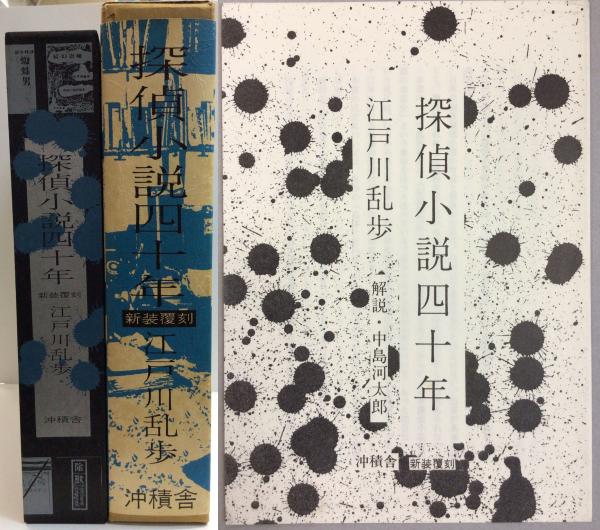 蜘蛛男
探偵小説四十年
新装覆刻
江戸川乱歩
沖積舎
陰獣
探偵小説四十年
新装覆刻
江戸川乱歩
沖積舎
探偵小説四十年
江戸川乱歩
解説・中島河太郎
沖積舎
新装覆刻